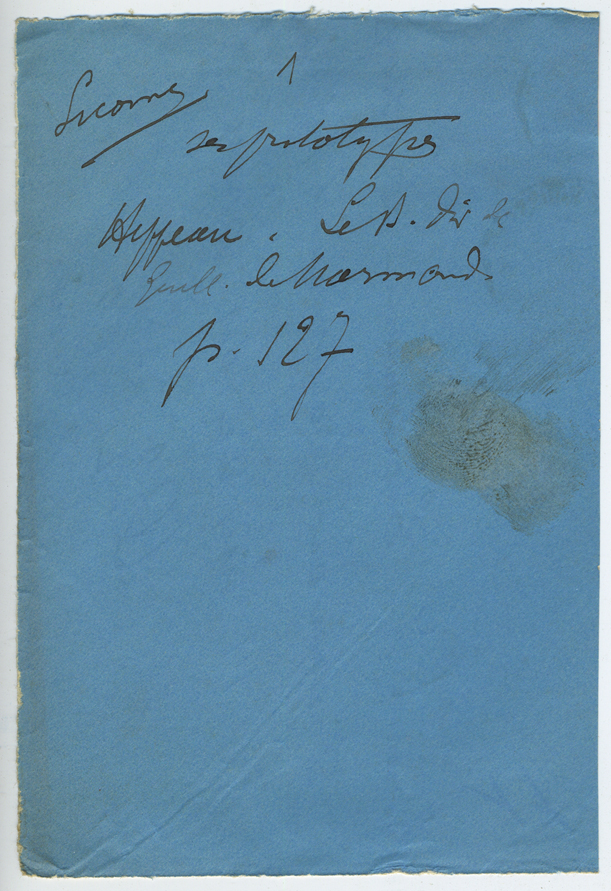 1
Licorne
ses prototypes
Hippeau. Le B. div de
Guill. le Normand
p. 127